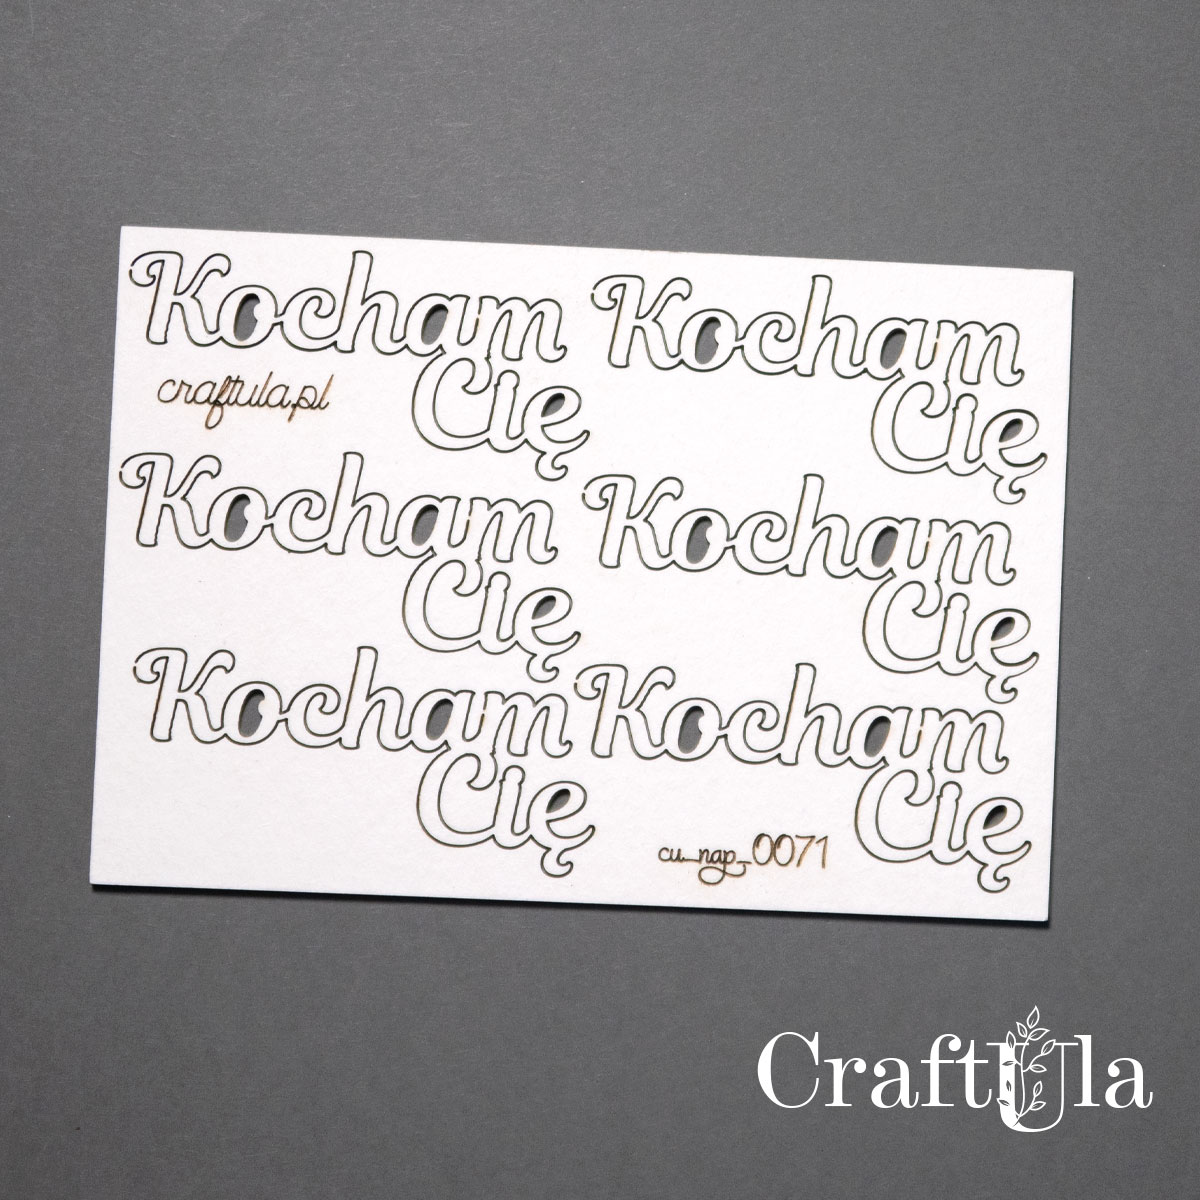 Kocham Kocham
Cię Cię
craftula.pl
Kocham Kocham
Cię Cię
Kocham Kocham
Cię Cię
cu_nap_0071
CraftUla